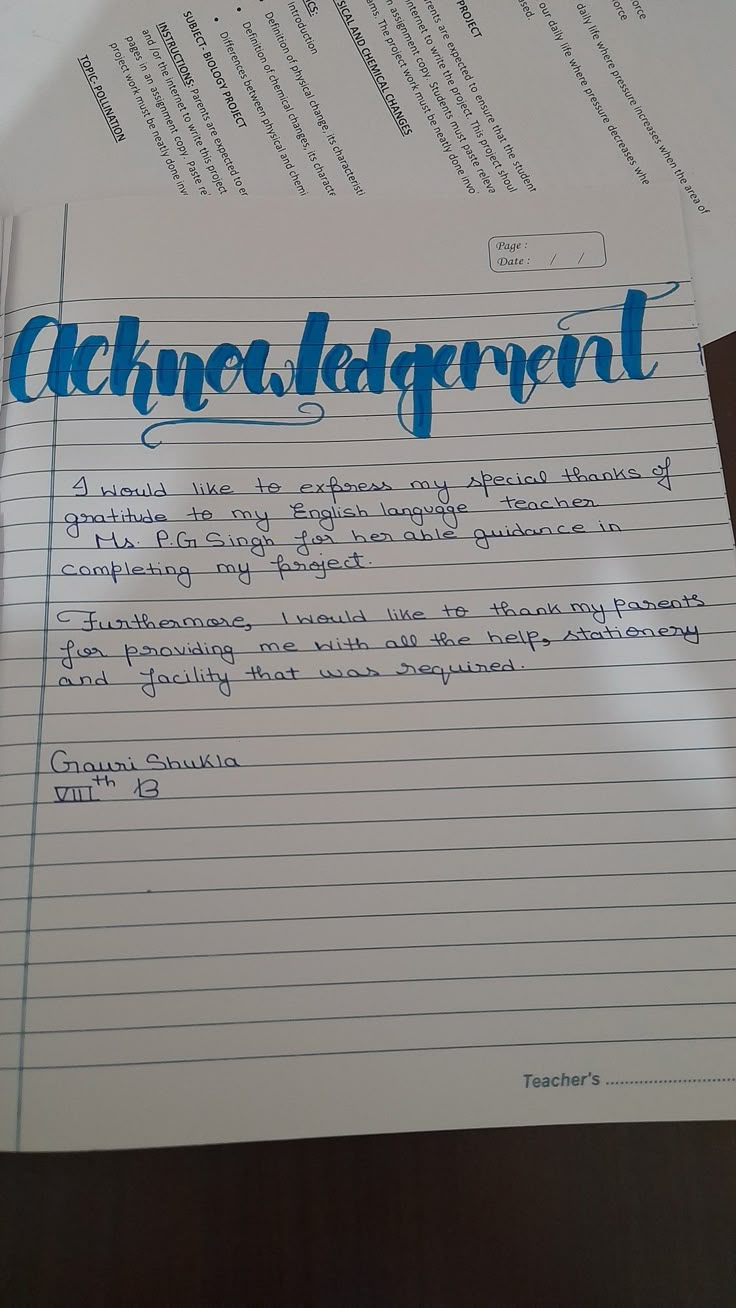 orce
daily life where pressure increases when the area of
orce
our daily life where pressure decreases whe
sed.
PROJECT
rents are expected to ensure that the student
internet to write the project. This project shoul
n assignment copy. Students must paste releva
ams. The project work must be neatly done invo
SICAL AND CHEMICAL CHANGES
CS:
Introduction
Definition of physical change, its characteristi
Definition of chemical changes, its characte
Differences between physical and chemi
SUBJECT- BIOLOGY PROJECT
INSTRUCTIONS: Parents are expected to er
and /or the internet to write this project
pages in an assignment copy. Paste re
project work must be neatly done inv
TOPIC: POLLINATION
Page :
Date : / /
Acknowledgement
I would like to express my special thanks of
gratitude to my English language teacher
Ms. P.G Singh for her able guidance in
completing my project.
Furthermore, I would like to thank my parents
for providing me with all the help, stationery
and facility that was required.
Gauri Shukla
VIIIth B
Teacher's